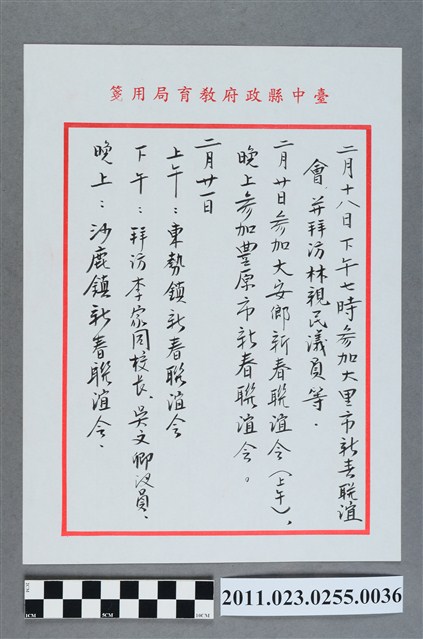 臺中縣政府教育局用箋
二月十八日下午七時參加大里市新春聯誼
會，并拜访林親民議員等．
二月廿日參加大安鄉新春聯誼会（上午），
晚上參加豐原市新春聯誼会。
二月廿一日
上午：東勢鎮新春聯誼会
下午：拜访李家同校長、吳文卿议員、
晚上：沙鹿鎮新春聯誼会、
1CM
1CM
5CM
10CM
2011.023.0255.0036